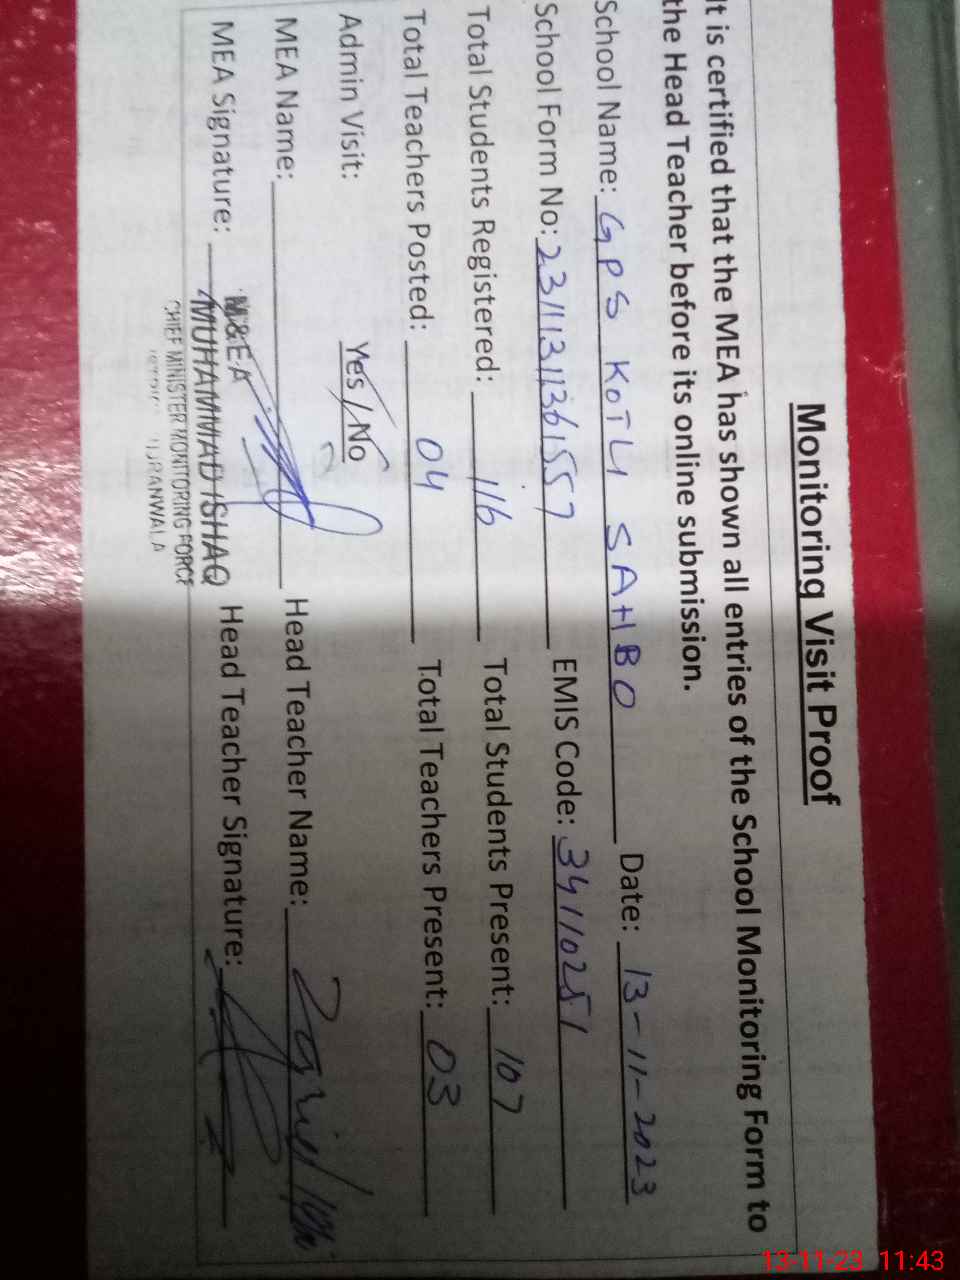 Monitoring Visit Proof
It is certified that the MEA has shown all entries of the School Monitoring Form to
the Head Teacher before its online submission.
School Name: GPS KOTLI SAHBO Date: 13-11-2023
School Form No: 23111311361557 EMIS Code: 34110251
Total Students Registered: 116 Total Students Present: 107
Total Teachers Posted: 04 Total Teachers Present: 03
Admin Visit: Yes / No
MEA Name: Head Teacher Name:
MEA Signature: Head Teacher Signature:
M&EA
MUHAMMAD ISHAQ
CHIEF MINISTER MONITORING FORCE
13-11-23 11:43